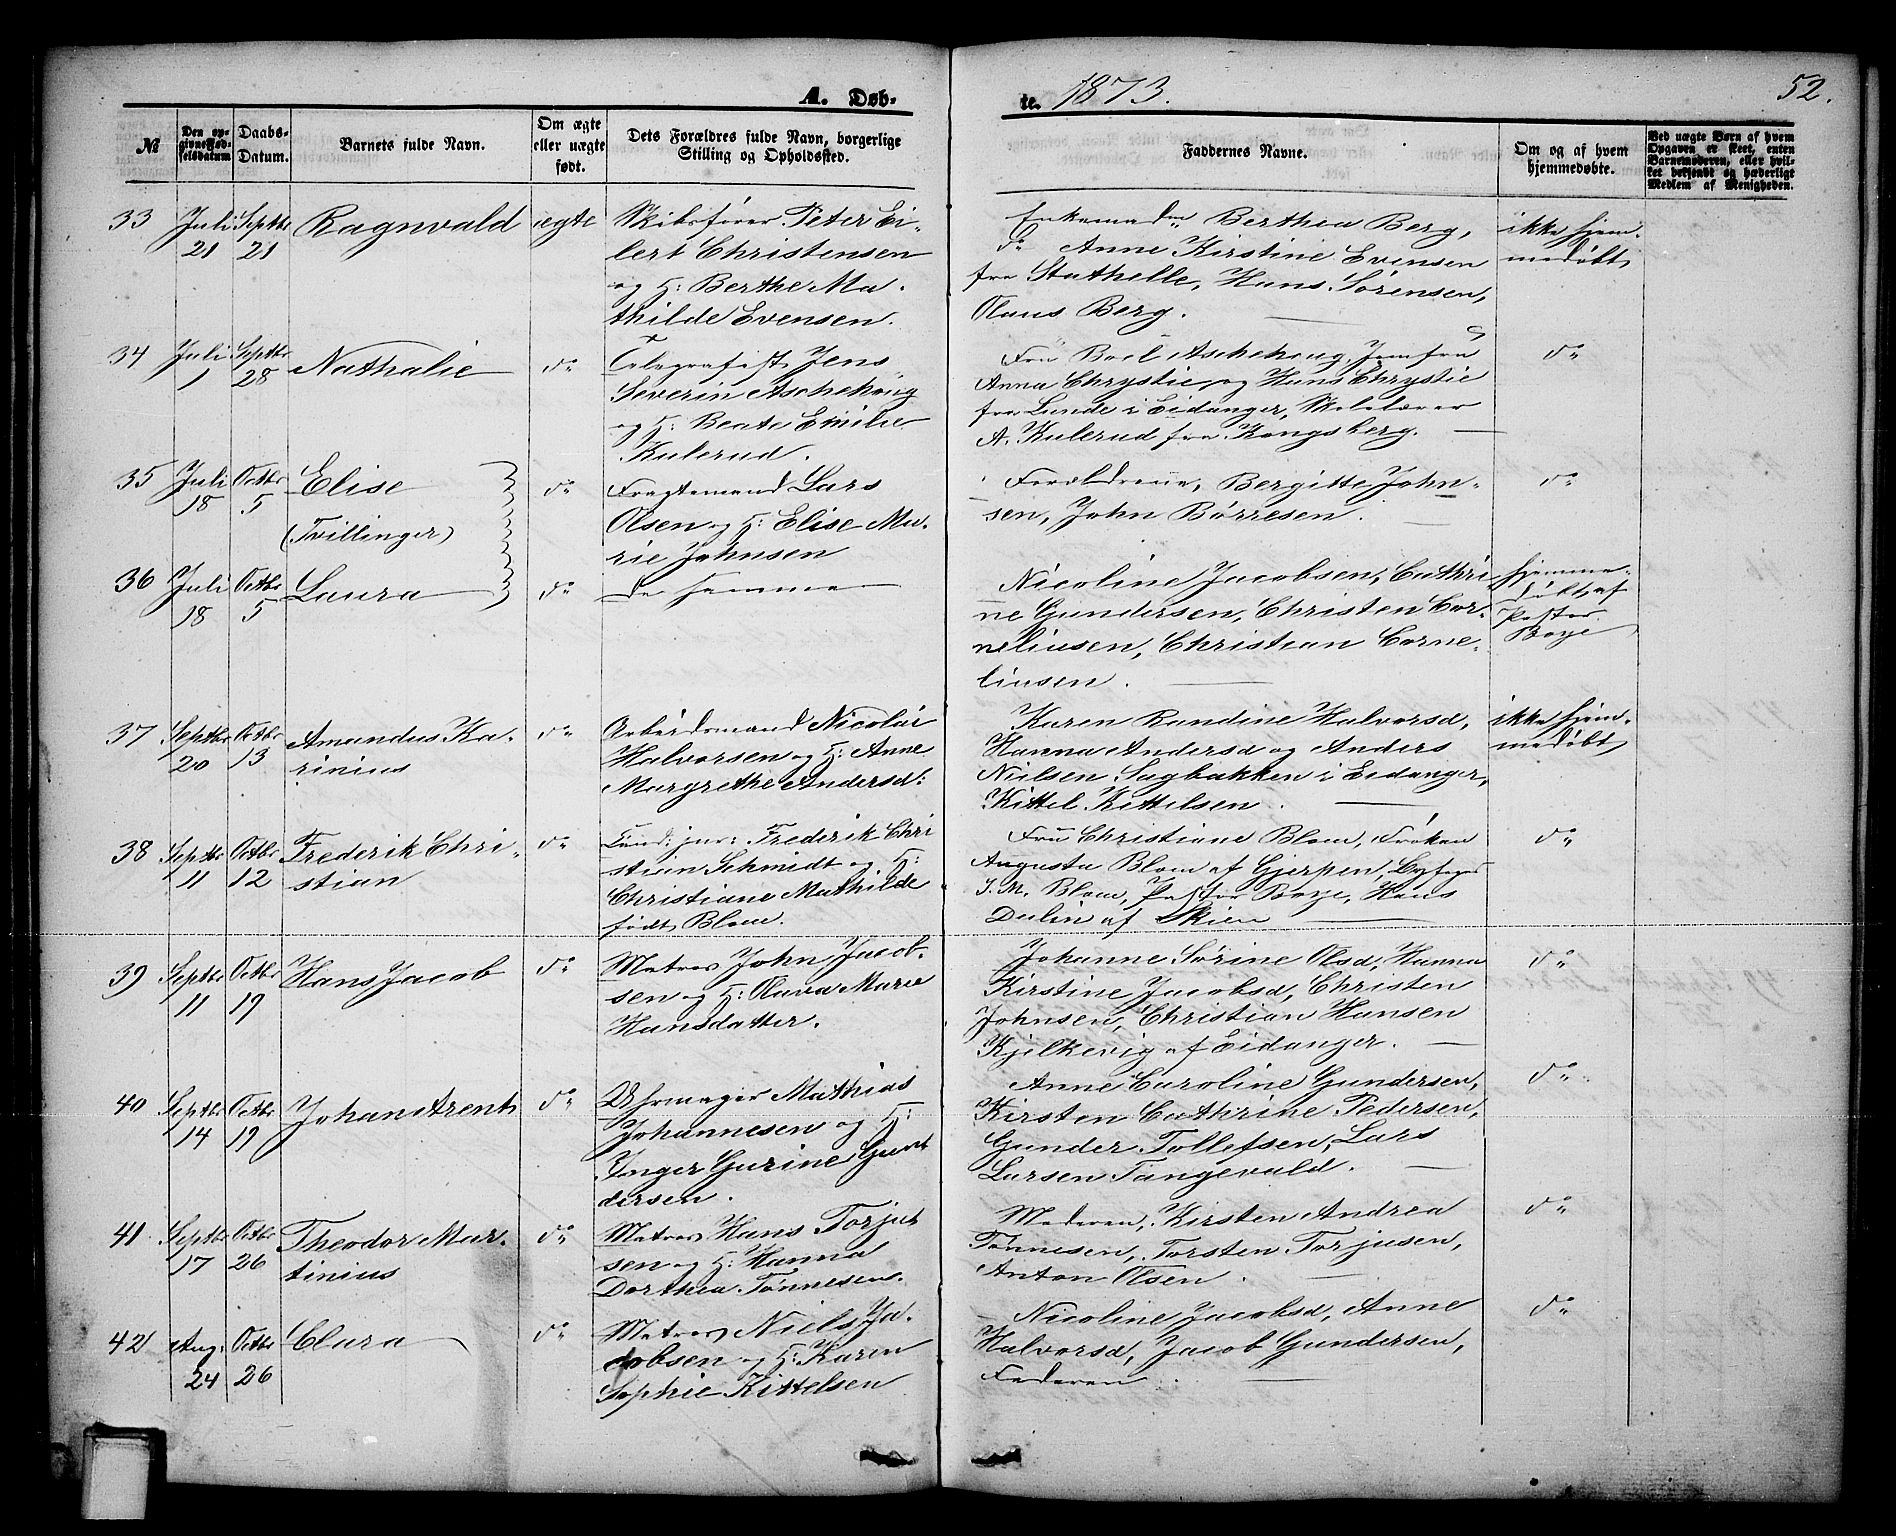 A. Døb-
te. 1873.
52.
№
Den op-
givne Fød-
selsdatum
Daabs-
Datum.
Barnets fulde Navn.
Om ægte
eller uægte
født.
Dets Forældres fulde Navn, borgerlige
Stilling og Opholdssted.
Faddernes Navne.
Om og af hvem
hjemmedøbte.
Ved uægte Børn af hvem
Opgaven er skeet, enten
Barnemoderen, eller hvil-
ket bekjendt og hæderligt
Medlem af Menigheden.
33 Juli 21 Septbr 21 Ragnvald ægte
Skibsfører Peter Ei-
lert Christensen
og H: Berthe Ma-
thilde Evensen.
Enkemadm Berthea Berg,
do Anne Kirstine Evensen
fra Stathelle, Hans Sørensen,
Olaus Berg.
ikke hjem-
medøbt
34 Juli 1 Septbr 28 Nathalie do
Telegrafist Jens
Severin Aschehoug
og H: Beate Emilie
Kulerud.
Fru Boel Aschehoug, Jomfru
Anna Chrystie og Hans Chrystie
fra Lunde i Eidanger, Skolelærer
A. Kulerud fra Kongsberg.
do
35 Juli 18 Octbr 5 Elise do
(Tvillinger)
Fragtemand Lars
Olsen og H: Elise Ma-
rie Johnsen
Forældrene, Bergitte John-
sen, John Børresen.
do
36 Juli 18 Octbr 5 Laura do
de samme
Nicoline Jacobsen, Cathri
ne Gundersen, Christen Cor-
neliusen, Christian Corne-
liusen.
hjemme-
døbt af
Pastor
Boye
37 Septbr 20 Octbr 13 Amandus Ka-
rinius do
Arbeidsmand Nicolai
Halvorsen og H: Anne
Margrethe Andersd:
Karen Randine Halvorsd,
Hanna Andersd og Anders
Nielsen Sagbakken i Eidanger,
Kittel Kittelsen.
ikke hjem-
medøbt
38 Septbr 11 Octbr 12 Frederik Chri-
stian do
Cand: jur: Frederik Chri
stian Schmidt og H:
Christiane Mathilde
født Blom.
Fru Christiane Blom, Frøken
Augusta Blom af Gjerpen, Byfoged
Blom, Pastor Boye, Hans
af Skien
do
39 Septbr 11 Octbr 19 Hans Jacob do
Matros John Jacob-
sen og H: Olava Marie
Hansdatter.
Johanne Sørine Olsd, Hanna
Kirstine Jacobsd, Christen
Johnsen, Christian Hansen
Kjelkevig af Eidanger.
do
40 Septbr 14 Octbr 19 Johan Arent do
Uhrmager Mathias
Johannesen og H:
Inger Gurine Gun
dersen.
Anne Caroline Gundersen,
Kirsten Cathrine Pedersen,
Gunder Tollefsen, Lars
Larsen Tangevald.
do
41 Septbr 17 Octbr 26 Theodor Mar-
tinius do
Matros Hans Torju
sen og H: Hanna
Dorthea Tønnesen.
Moderen, Kirsten Andrea
Tønnesen, Torsten Torjusen,
Anton Olsen.
do
42 Aug: 24 Octbr 26 Clara do
Matros Niels Ja-
cobsen og H: Karen
Sophie Kittelsen
Nicoline Jacobsd, Anne
Halvorsd, Jacob Gundersen,
Faderen.
do